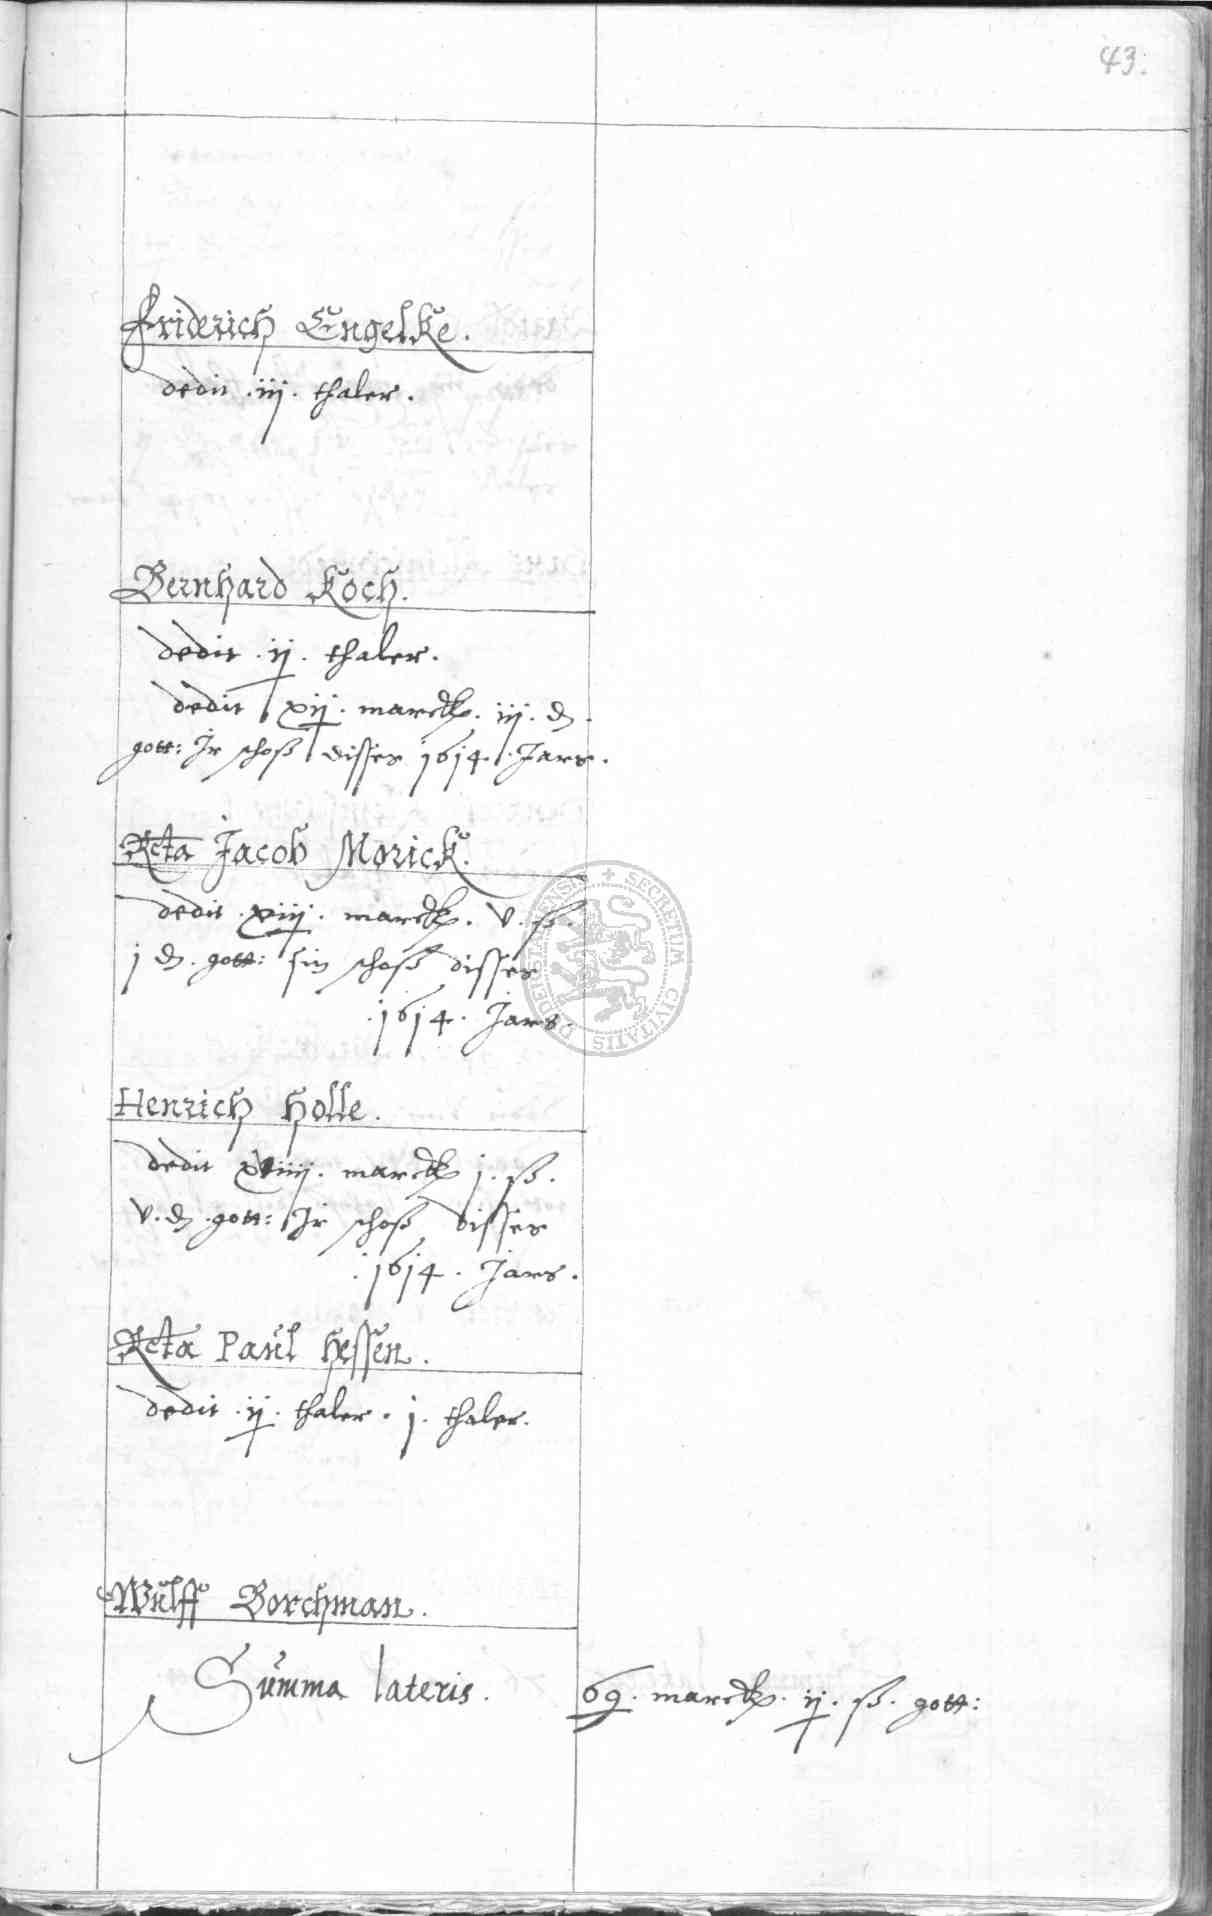 43.
Friderich Engelke.
dedit .iij. thaler.
Bernhard Koch.
dedit .ij. thaler.
dedit xij. marck. iij. d.
gott: Ir schoß disses 1614. Jars.
Relicta Jacob Morick.
dedit xiij. marck. v. ß.
j d. gott: sin schoß disses
.1614. Jars.
Henrich Holle.
dedit xiiij. marck j. ß.
v. d. gott: Ir schoß disses
.1614. Jars.
Relicta Paul Hessen.
dedit .ij. thaler. j. thaler.
Wulff Borchman.
Summa lateris. 69. marck. ij. ß. gott:
SECRETUM CIVITATIS DUDERSTADENSIS